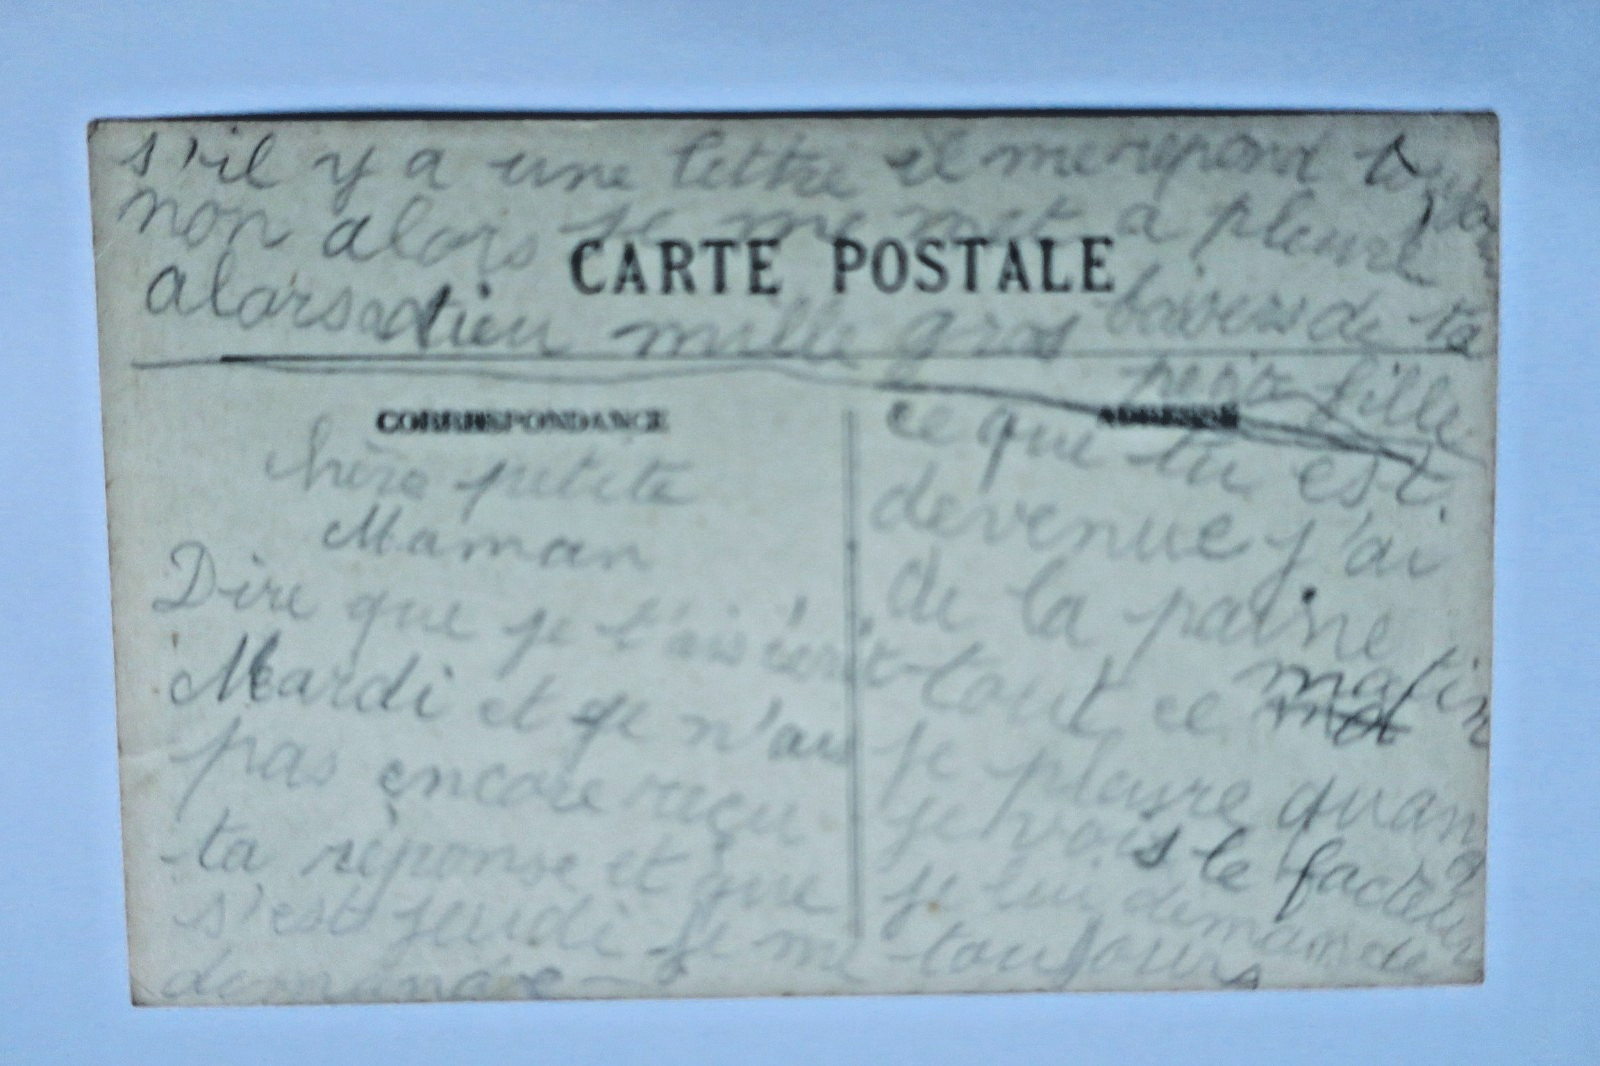 s'il y a une lettre il me repond tou
jours
non alors je me met a pleuré
CARTE POSTALE
alors adieu mille gros baisers de ta
petite fille
CORRESPONDANCE
hère petite
Maman
Dire que je t'ais écrit
Mardi et je n'ais
pas encore reçu
ta réponse et que
s'est jeudi je me
demande
ADRESSE
ce que tu est
devenue j'ai
de la paine
tout ce matin
je pleure quand
je vois le facteur
je lui demande
toujours